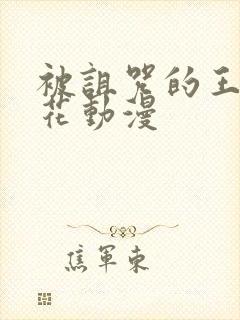 被詛咒的王
花動漫
焦軍東